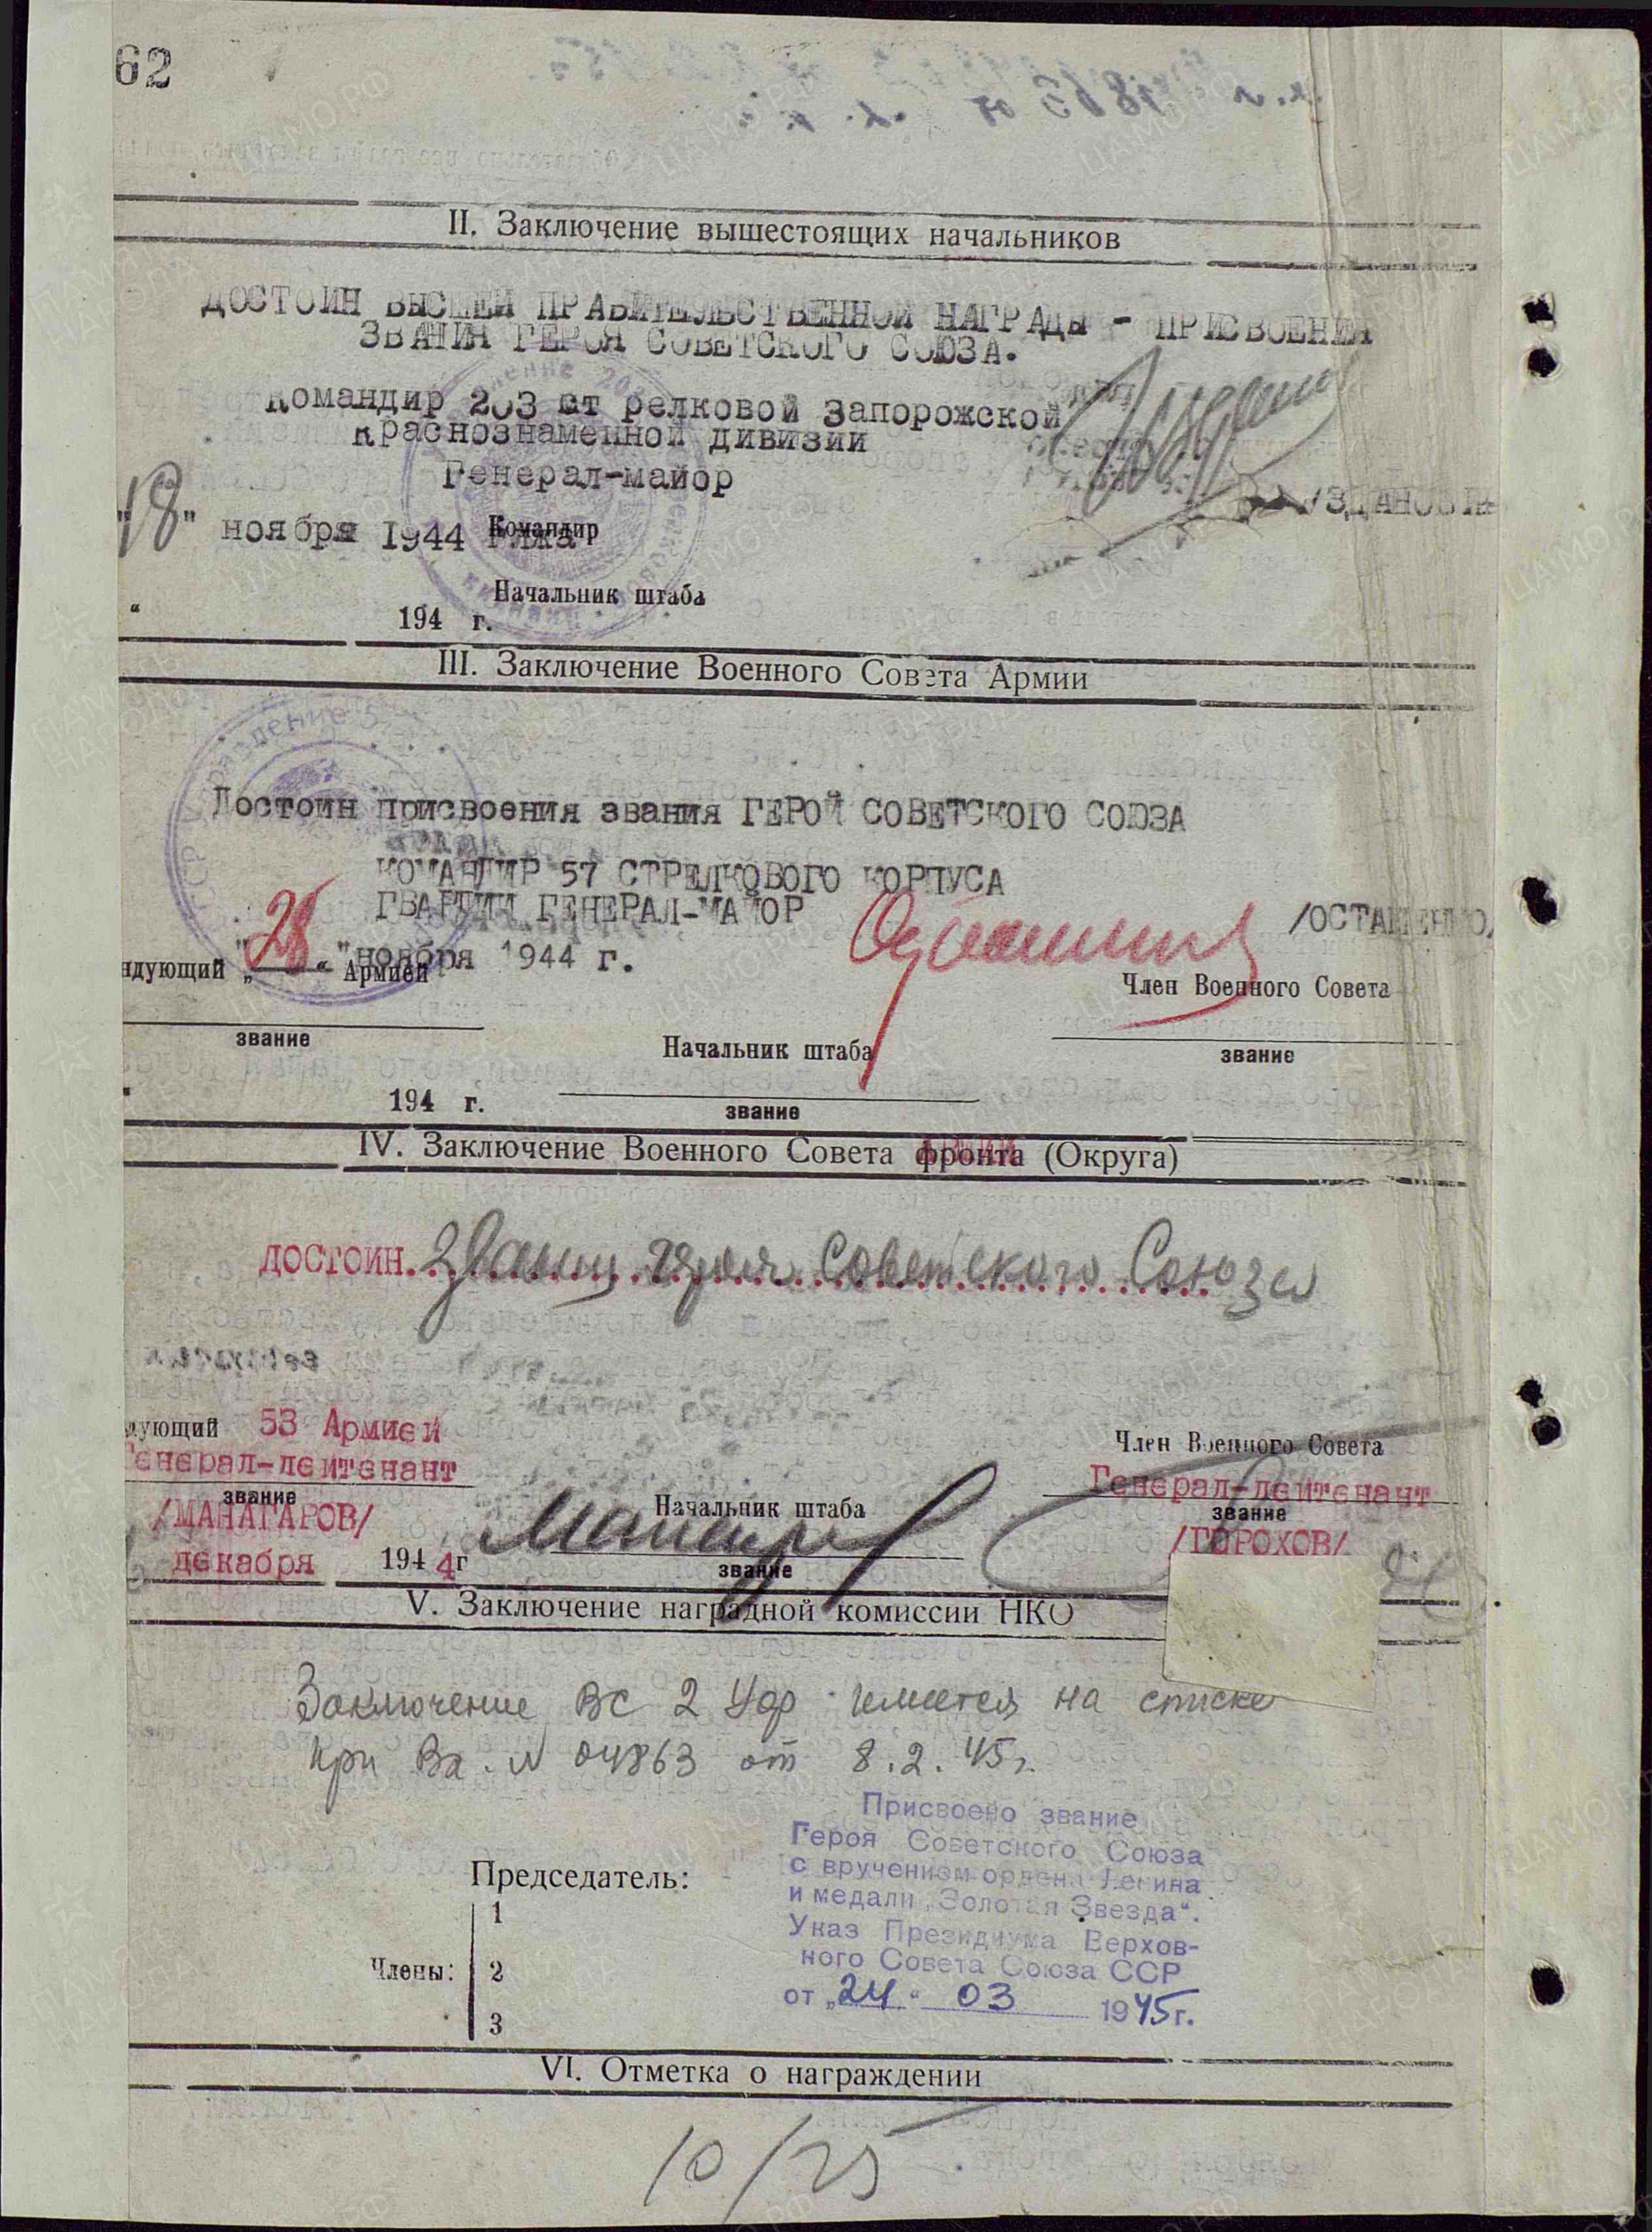 62
II. Заключение вышестоящих начальников
ДОСТОИН ВЫСШЕЙ ПРАВИТЕЛЬСТВЕННОЙ НАГРАДЫ - ПРИСВОЕНИЯ
ЗВАНИЯ ГЕРОЯ СОВЕТСКОГО СОЮЗА.
Командир 203 ст релковой Запорожской
Краснознаменной дивизии
Генерал-майор
/ЗДАНОВИЧ
"18" ноября 1944 года
Командир
Начальник штаба
" 194 г.
III. Заключение Военного Совета Армии
Достоин присвоения звания ГЕРОЙ СОВЕТСКОГО СОЮЗА
КОМАНДИР 57 СТРЕЛКОВОГО КОРПУСА
ГВАРДИИ ГЕНЕРАЛ-МАЙОР /ОСТАШЕНКО/
"28" ноября 1944 г.
ндующий Армией Член Военного Совета
звание Начальник штаба звание
194 г. звание
IV. Заключение Военного Совета фронта (Округа)
ДОСТОИН. звания героя Советского Союза
дующий 53 Армией Член Военного Совета
Генерал-лейтенант Генерал-лейтенант
звание Начальник штаба звание
/МАНАГАРОВ/ /ГОРОХОВ/
декабря 1944г звание
V. Заключение наградной комиссии НКО
Заключение ВС 2 Укр имеется на списке
при Вх. N 04863 от 8.2.45г.
Присвоено звание
Героя Советского Союза
с вручением ордена Ленина
и медали „Золотая Звезда“.
Указ Президиума Верхов-
ного Совета Союза ССР
от „24“ 03 1945г.
Председатель:
1
Члены: 2
3
VI. Отметка о награждении
10/25